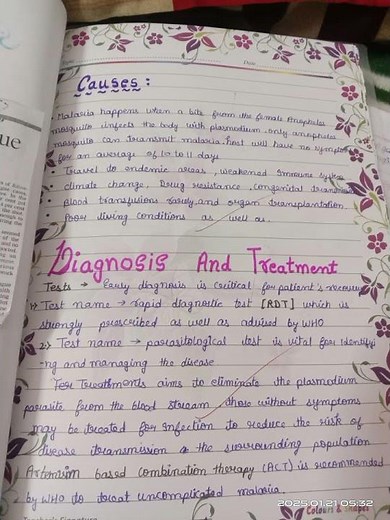 ue
Date
Causes :
• Malaria happens when a bite from the female Anopheles
mosquito infects the body with plasmodium. only anopheles
mosquito can transmit malaria. host will have no symptoms
for an average of 10 to 11 days
• Travel to endemic areas, weakened Immune system
• climate change, Drug resistance, congenital
• Blood transfusions rarely, and organ transplantation.
• Poor living conditions as well as.
Diagnosis And Treatment
Tests → Early diagnosis is critical for patient's recovery
1) Test name → rapid diagnostic test [RDT] which is
strongly prescribed as well as advised by WHO
2) Test name → parasitological test is vital for Identifyi
-ng and managing the disease
For Treatments aims to eliminate the plasmodium
parasite from the blood stream those without symptoms
may be treated for infection to reduce the risk of
disease transmission in the surrounding population
based combination therapy (ACT) is recommended
by WHO to treat uncomplicated malaria
2025.01.21 05:32
Colours & Shapes